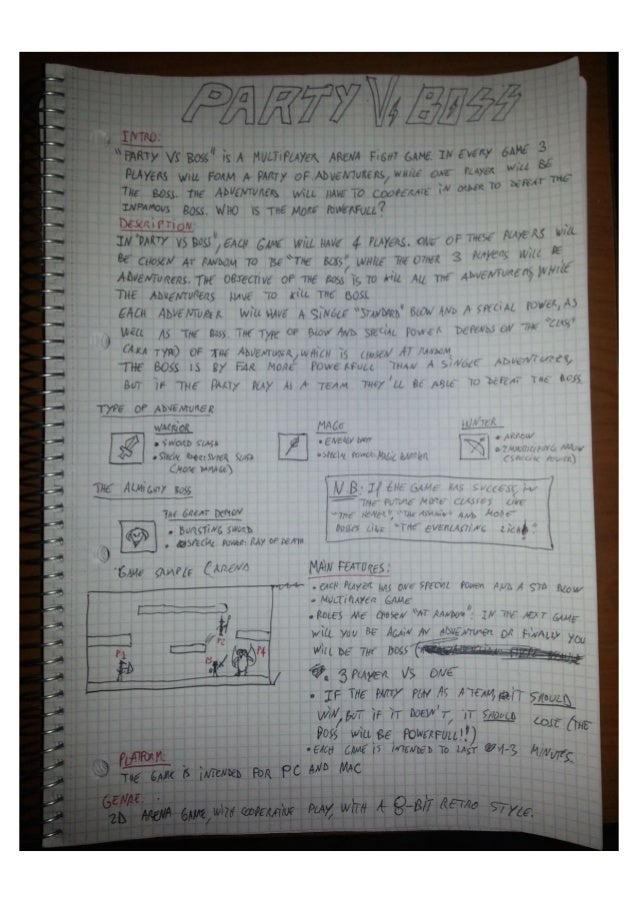 PARTY Vs BOSS
INTRO:
"PARTY VS BOSS" IS A MULTIPLAYER ARENA FIGHT GAME. IN EVERY GAME 3
PLAYERS WILL FORM A PARTY OF ADVENTURERS, WHILE ONE PLAYER WILL BE
THE BOSS. THE ADVENTURERS WILL HAVE TO COOPERATE IN ORDER TO DEFEAT THE
INFAMOUS BOSS. WHO IS THE MORE POWERFULL?
DESCRIPTION:
IN "PARTY VS BOSS", EACH GAME WILL HAVE 4 PLAYERS. ONE OF THESE PLAYERS WILL
BE CHOSEN AT RANDOM TO BE "THE BOSS", WHILE THE OTHER 3 PLAYERS WILL BE
ADVENTURERS. THE OBJECTIVE OF THE BOSS IS TO KILL ALL THE ADVENTURERS, WHILE
THE ADVENTURERS HAVE TO KILL THE BOSS
EACH ADVENTURER WILL HAVE A SINGLE "STANDARD" BLOW AND A SPECIAL POWER, AS
WELL AS THE BOSS. THE TYPE OF BLOW AND SPECIAL POWER DEPENDS ON THE "CLASS"
(AKA TYPE) OF THE ADVENTURER, WHICH IS CHOSEN AT RANDOM
THE BOSS IS BY FAR MORE POWERFULL THAN A SINGLE ADVENTURER,
BUT IF THE PARTY PLAY AS A TEAM THEY'LL BE ABLE TO DEFEAT THE BOSS
TYPE OF ADVENTURER
WARRIOR
• SWORD SLASH
SLASH
(MORE DAMAGE)
MAGE
• ENERGY
• SPECIAL POWER: MAGIC BARRIER
HUNTER
• ARROW
• ARROW
(SPECIAL POWER)
THE ALMIGHTY BOSS
THE GREAT DEMON
• BURSTING SWORD
• SPECIAL POWER: RAY OF DEATH
N.B.: IF THE GAME HAS SUCCESS, IN
THE FUTURE MORE CLASSES LIKE
"THE HEALER", "THE ASSASSIN" AND MORE
BOSSES LIKE "THE EVERLASTING LICH"!
GAME SAMPLE (ARENA)
P1
P2
P3
P4
MAIN FEATURES:
• EACH PLAYER HAS ONE SPECIAL POWER AND A STD BLOW
• MULTIPLAYER GAME
• ROLES ARE CHOSEN "AT RANDOM": IN THE NEXT GAME
WILL YOU BE AGAIN AN ADVENTURER OR FINALLY YOU
WILL BE THE BOSS
• 3 PLAYER VS ONE
• IF THE PARTY PLAY AS A TEAM, IT SHOULD
WIN, BUT IF IT DOESN'T, IT SHOULD LOSE (THE
BOSS WILL BE POWERFULL!!)
• EACH GAME IS INTENDED TO LAST 1-3 MINUTES.
PLATFORM:
THE GAME IS INTENDED FOR PC AND MAC
GENRE:
2D ARENA GAME, WITH COOPERATIVE PLAY, WITH A 8-BIT RETRO STYLE.